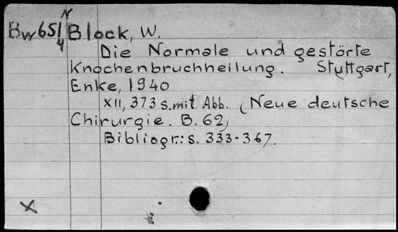 N
Bw651 Block, W.
4
Die Normale und gestörte
Knochenbruchheilung. Stuttgart,
Enke, 1940
XII, 373 s. mit Abb. (Neue deutsche
Chirurgie. B. 62)
Bibliogr.: s. 333-367.
X